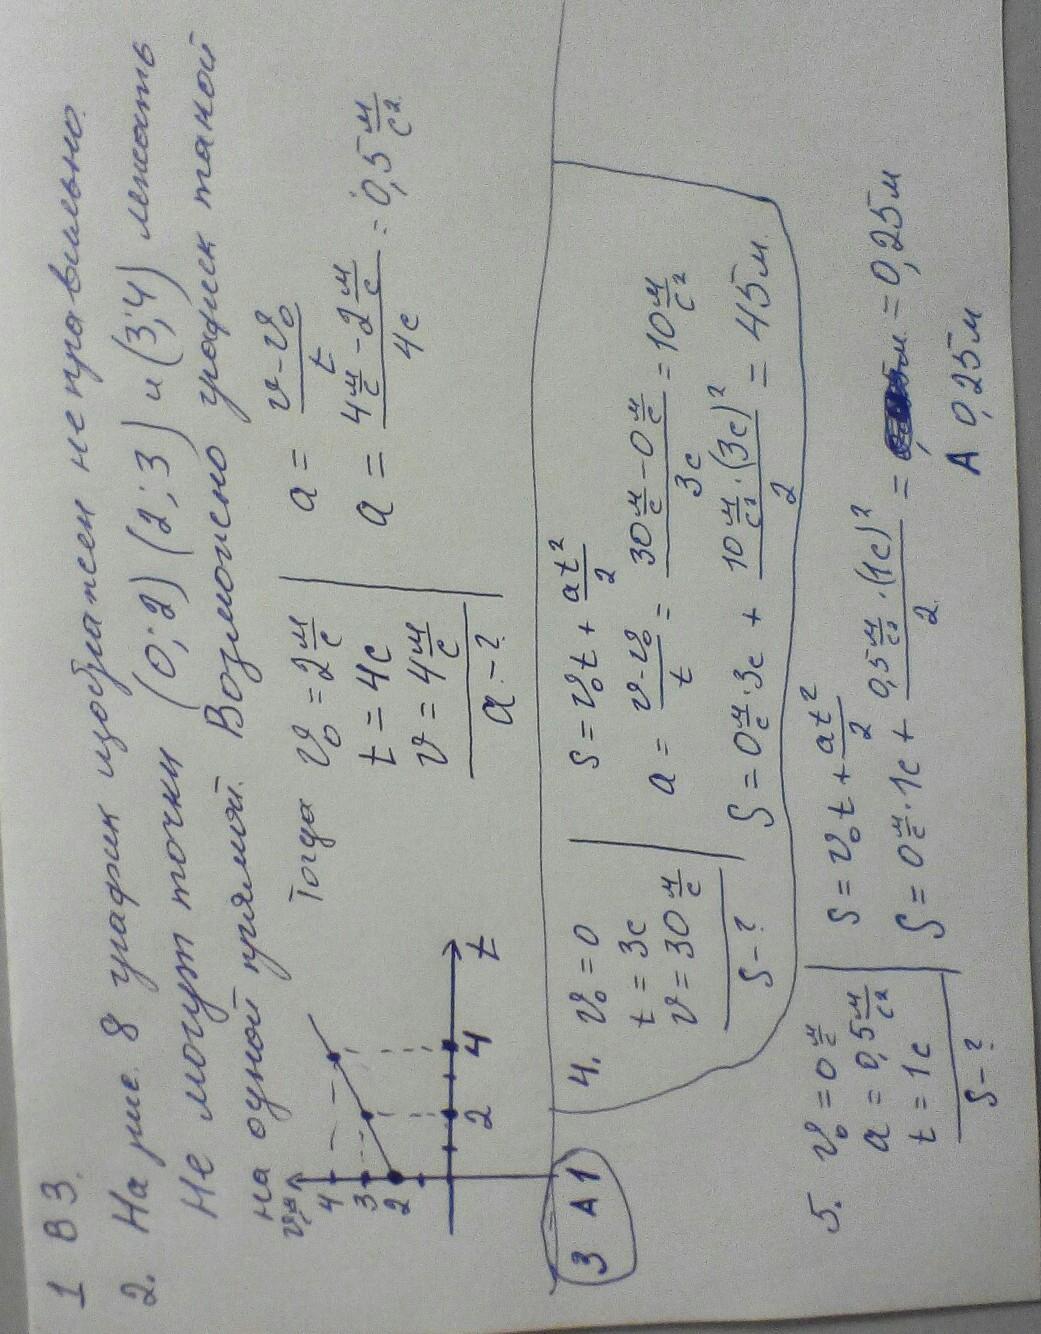 1 В 3.
2. На рис. 8 график изображен неправильно.
Не могут точки (0;2) (2;3) и (3;4) лежать
на одной прямой. Возможно график такой
v, м/с
4
3
2
2 4 t
Тогда v₀ = 2 м/с
t = 4с
v = 4 м/с
a - ?
a = (v - v₀)/t
a = (4 м/с - 2 м/с)/4с = 0,5 м/с²
3 А 1
4. v₀ = 0
t = 3с
v = 30 м/с
S - ?
S = v₀t + at²/2
a = (v - v₀)/t = (30 м/с - 0 м/с)/3с = 10 м/с²
S = 0 м/с · 3с + (10 м/с² · (3с)²)/2 = 45 м.
5. v₀ = 0 м/с
a = 0,5 м/с²
t = 1с
S - ?
S = v₀t + at²/2
S = 0 м/с · 1с + (0,5 м/с² · (1с)²)/2 = = 0,25 м
А 0,25 м